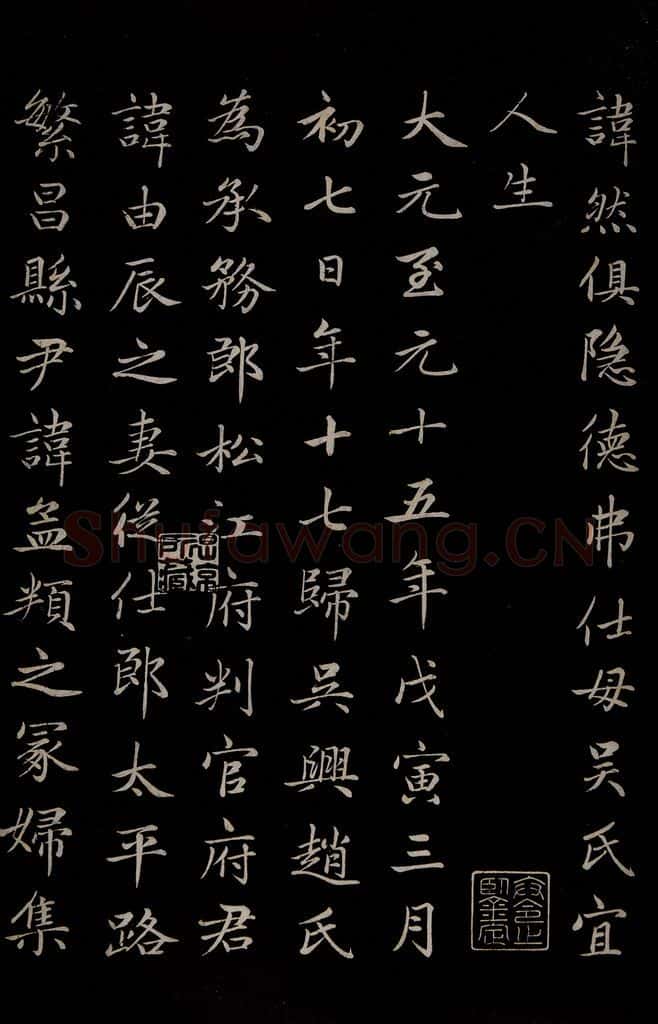 諱然俱隐德弗仕母吴氏宜
人生
大元至元十五年戊寅三月
初七日年十七歸吳興趙氏
為承務郎松江府判官府君
諱由辰之妻從仕郎太平路
繁昌縣尹諱孟頖之冢婦集
Shufawang.CN